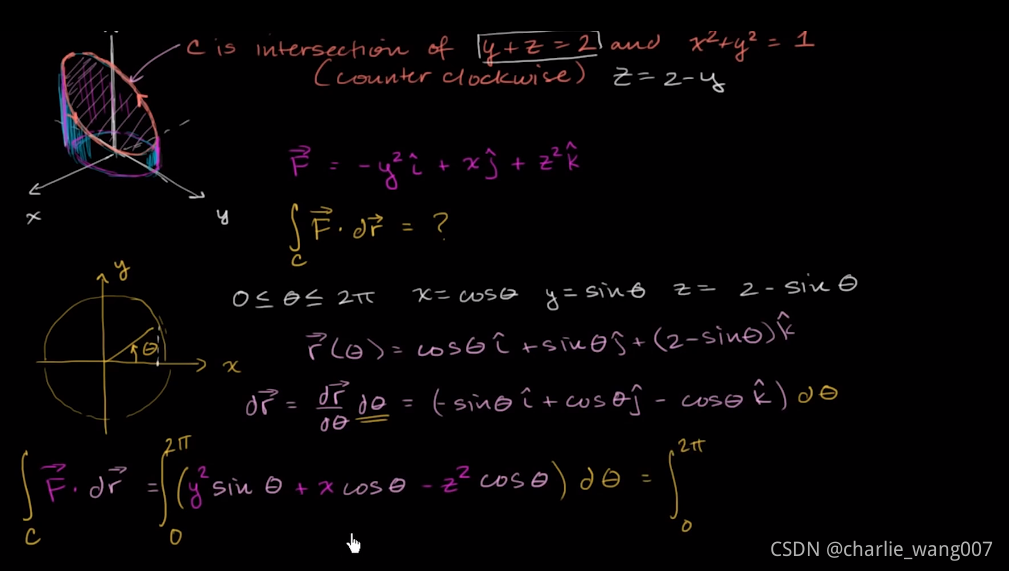 C is intersection of y+z=2 and x²+y²=1
(counter clockwise) z=2-y
x
y
F⃗ = -y²î + xĵ + z²k̂
∫_C F⃗·dr⃗ = ?
y
θ
x
0≤θ≤2π x=cosθ y=sinθ z= 2-sinθ
r⃗(θ)=cosθ î+sinθ ĵ+(2-sinθ)k̂
dr⃗ = dr⃗/dθ dθ = (-sinθ î+cosθ ĵ - cosθ k̂) dθ
∫_C F⃗·dr⃗ = ∫_0^2π (y² sin θ + x cosθ - z² cosθ) dθ = ∫_0^2π
CSDN @charlie_wang007